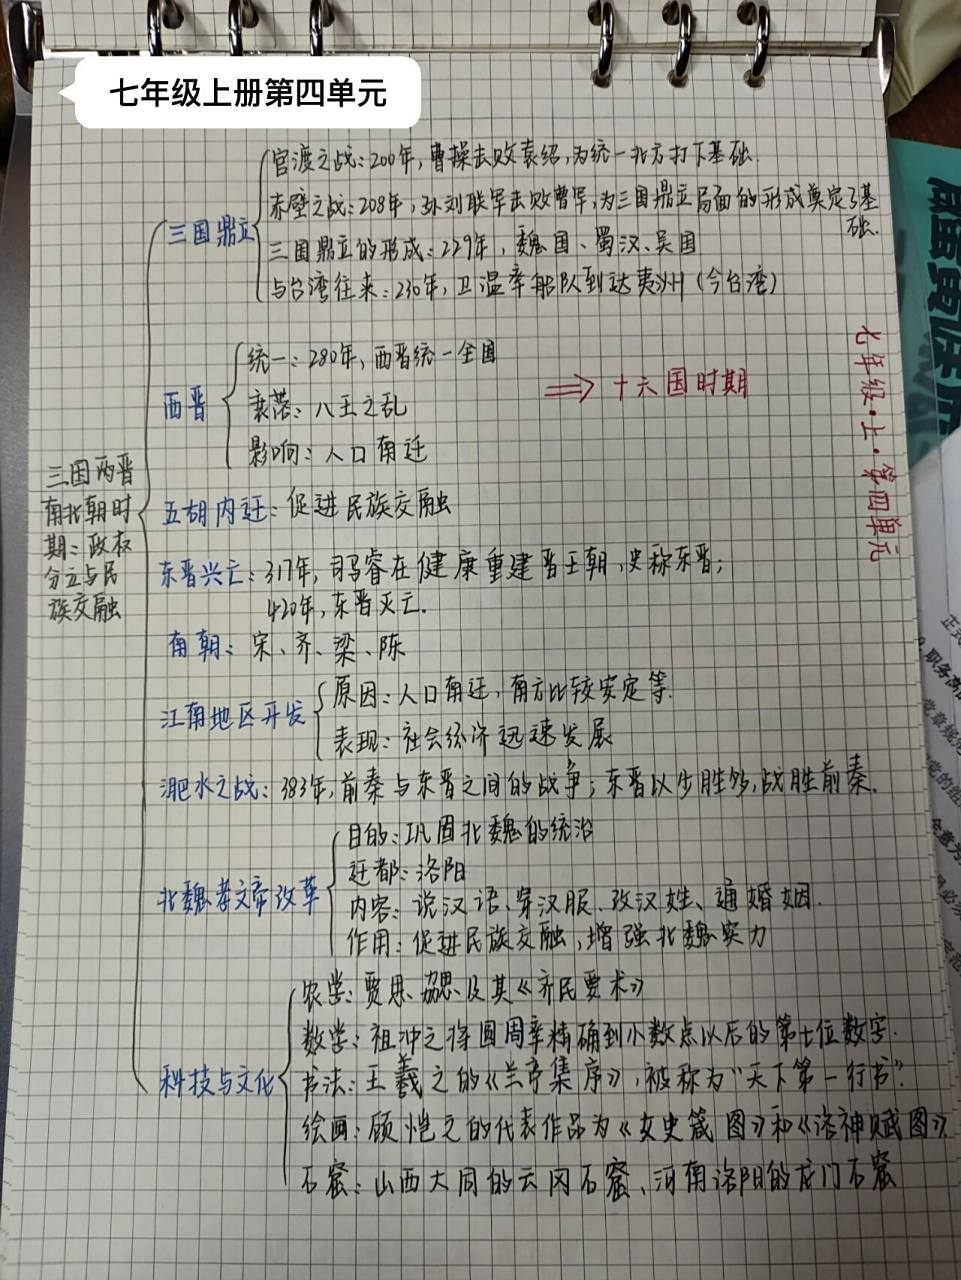 七年级上册第四单元
官渡之战：200年，曹操击败袁绍，为统一北方打下基础.
赤壁之战：208年，孙刘联军击败曹军，为三国鼎立局面的形成奠定了基
础.
三国鼎立
三国鼎立的形成：229年，魏国、蜀汉、吴国
与台湾往来：230年，卫温率船队到达夷州（今台湾）
统一：280年，西晋统一全国
西晋
衰落：八王之乱
⇒十六国时期
影响：人口南迁
七年级·上·第四单元
三国两晋
南北朝时
期：政权
分立与民
族交融
五胡内迁：促进民族交融
东晋兴亡：317年，司马睿在健康重建晋王朝，史称东晋；
420年，东晋灭亡.
南朝：宋、齐、梁、陈
江南地区开发
原因：人口南迁，南方比较安定等.
表现：社会经济迅速发展
淝水之战：383年，前秦与东晋之间的战争；东晋以少胜多，战胜前秦.
北魏孝文帝改革
目的：巩固北魏的统治
迁都：洛阳
内容：说汉语、穿汉服、改汉姓、通婚姻.
作用：促进民族交融，增强北魏实力
科技与文化
农学：贾思勰及其《齐民要术》
数学：祖冲之将圆周率精确到小数点以后的第七位数字.
书法：王羲之的《兰亭集序》，被称为“天下第一行书”.
绘画：顾恺之的代表作品为《女史箴图》和《洛神赋图》.
石窟：山西大同的云冈石窟、河南洛阳的龙门石窟